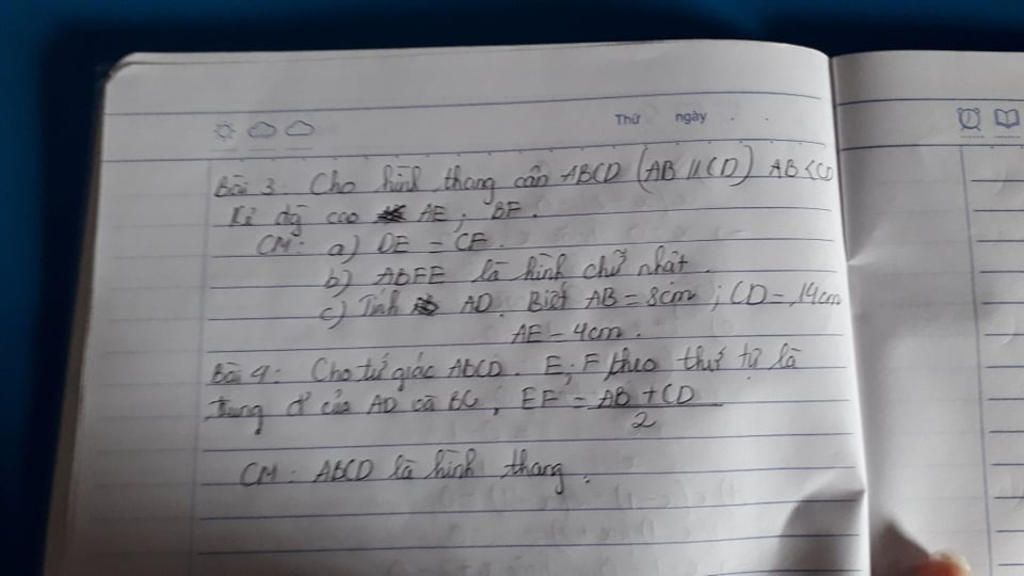 Thứ ngày
Bài 3. Cho hình thang cân ABCD (AB // CD) AB < CD
Kẻ đg cao AE, BF.
CM: a) DE = CF.
b) ABFE là hình chữ nhật.
c) Tính AD. Biết AB = 8cm ; CD = 14cm
AE = 4cm.
Bài 4: Cho tứ giác ABCD. E; F theo thứ tự là
trung đ của AD và BC, EF = AB + CD / 2
CM: ABCD là hình thang.